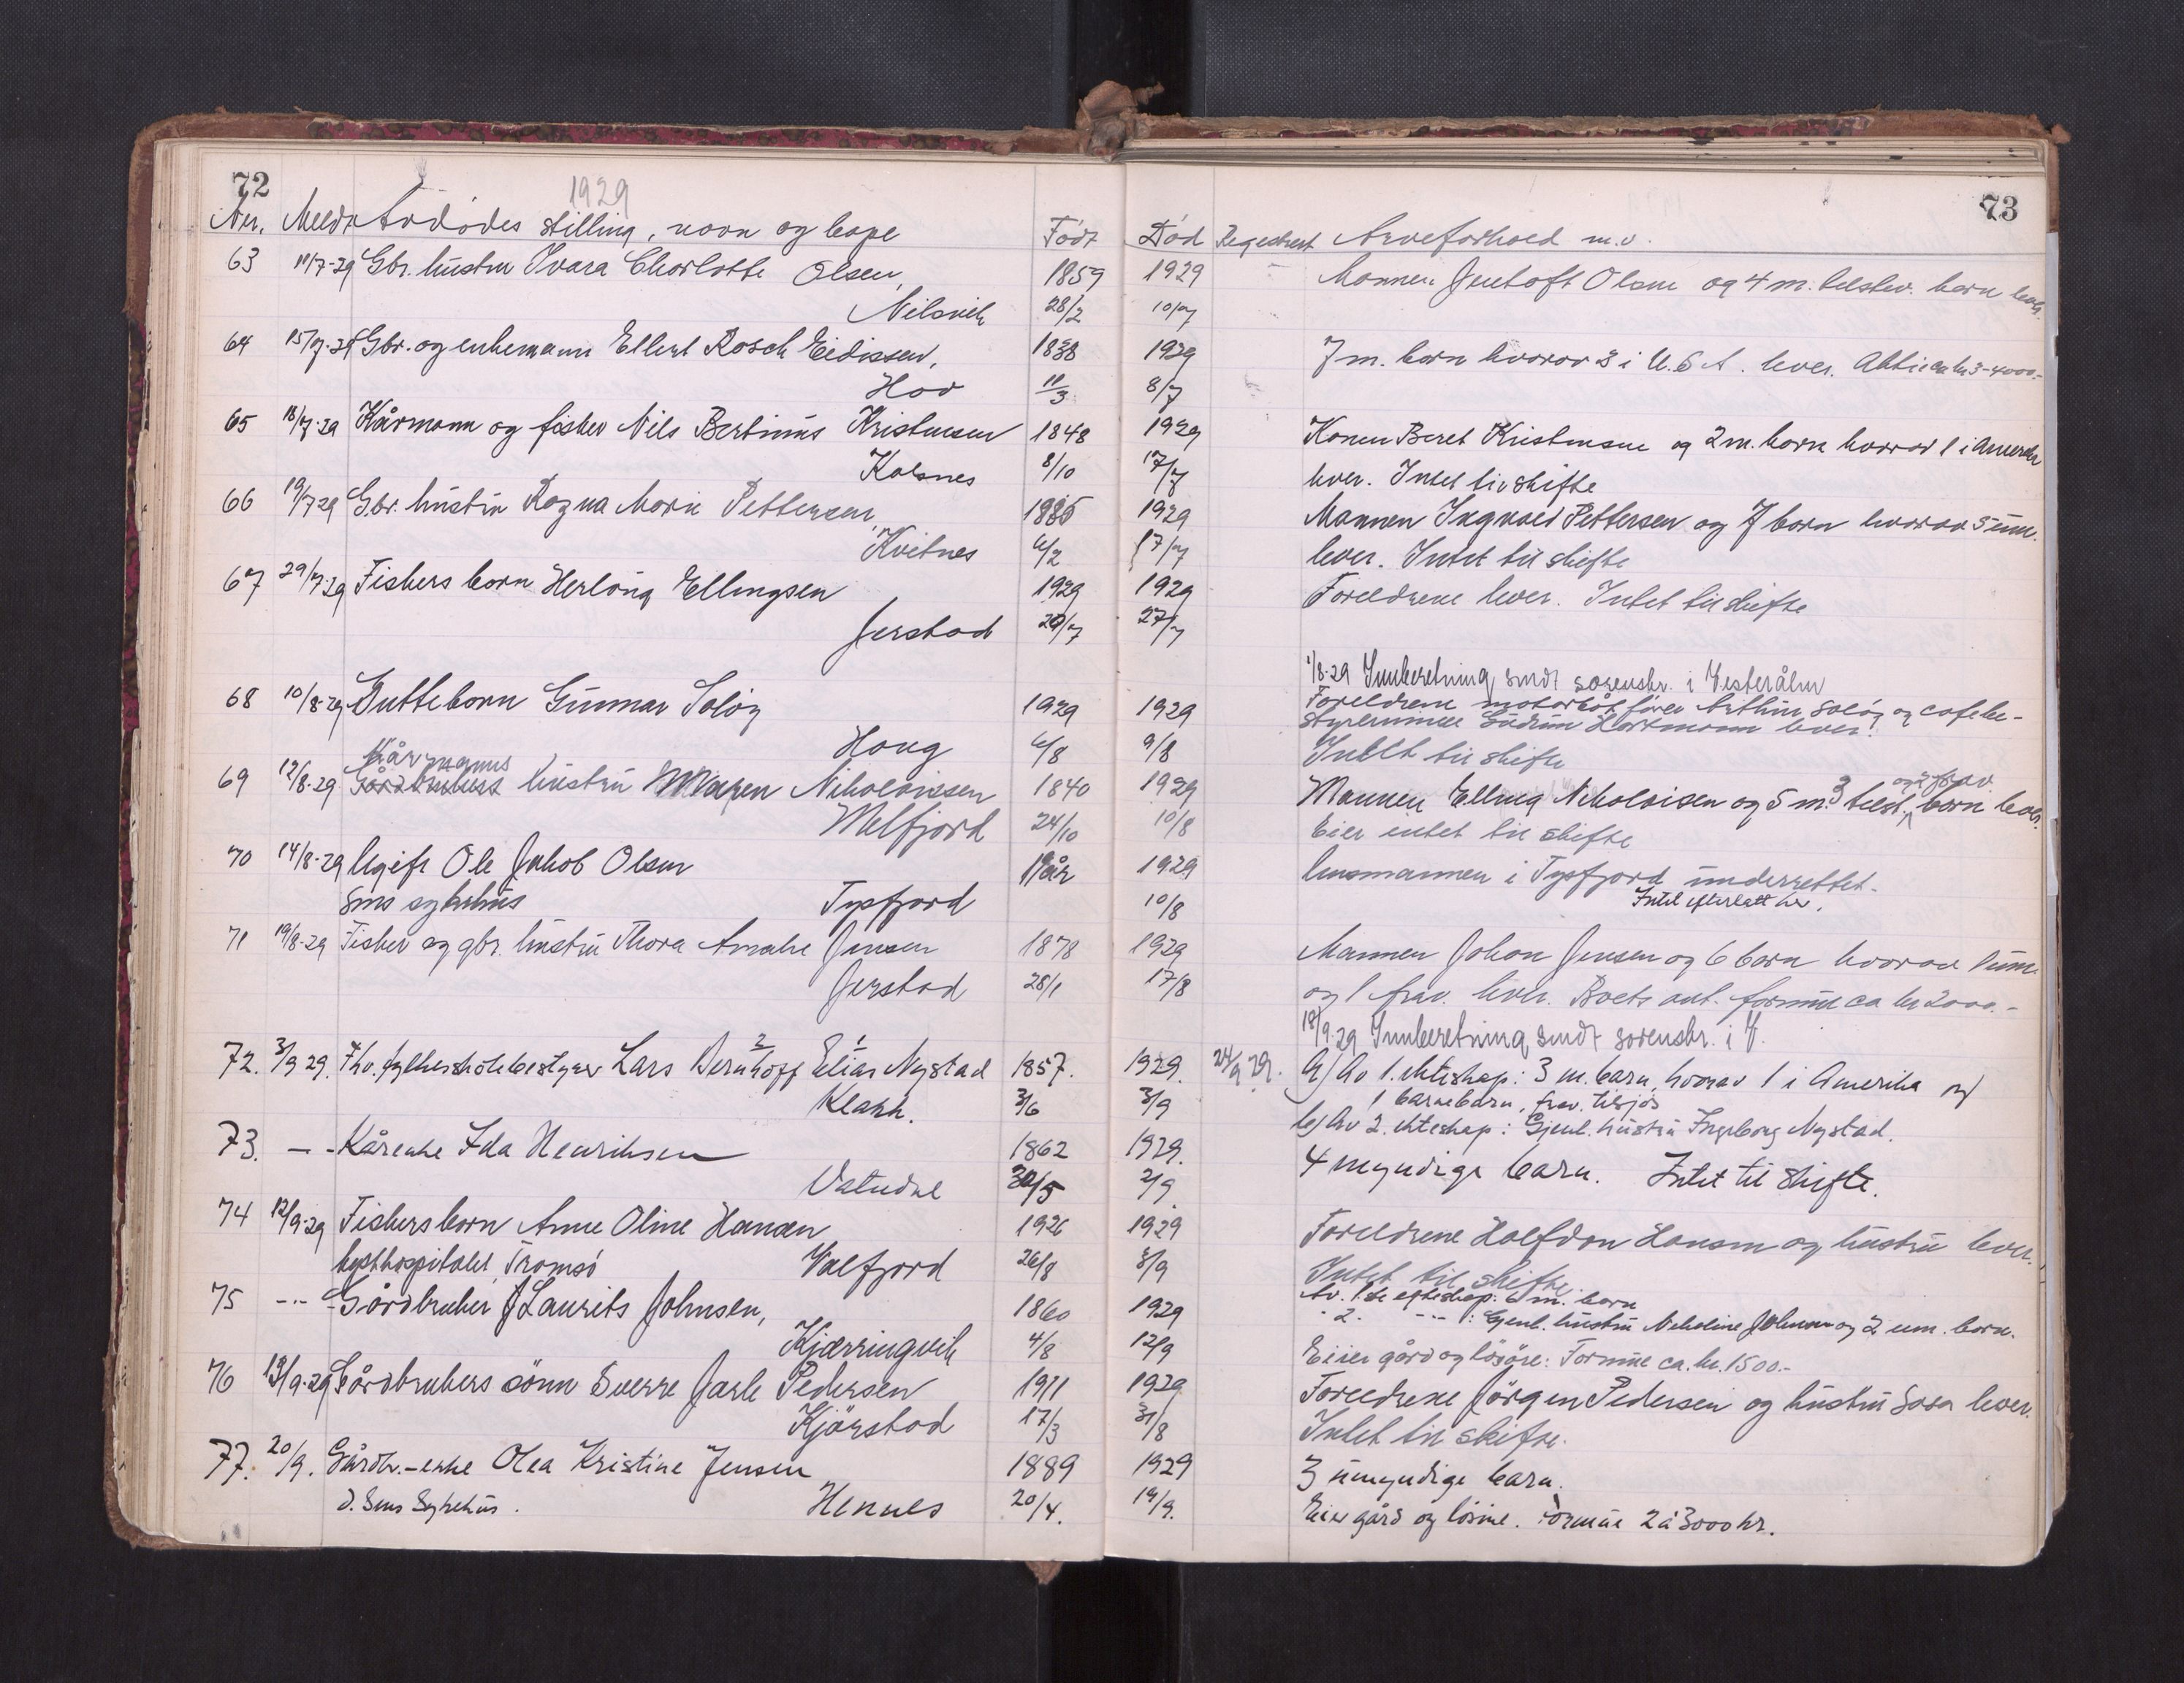 72
1929
Nr. Meldt Avdödes stilling, navn og bopel Födt
63 11/7-29 Gbr. hustru Ivara Charlotte Olsen, 1859
Nilsvik 28/2
64 15/7-29 Gbr. og enkemann Ellert Rosch Eidissen, 1838
Hov 11/3
65 18/7-29 Kårmann og fisker Nils Bertinius Kristensen 1848
Kalsnes 8/10
66 19/7-29 Gbr. hustru Ragna Marie Pettersen, 1885
Kvitnes 6/2
67 29/7-29 Fiskers barn Herlaug Ellingsen 1929
Jerstad 20/7
68 10/8-29 Guttebarn Gunnar Solöy 1929
Haug 6/8
Kårmanns
69 12/8-29 Gårdbrukers hustru Maren Nikolaisen 1840
Melfjord 24/10
70 14/8-29 Ugift Ole Jakob Olsen 19 år
Sms sykehus Tysfjord
71 19/8-29 Fisker og gbr. hustru Thora Amalie Jensen 1878
Jerstad 28/1
72. 3/9 29. Fhv. fylkesskolebestyrer Lars Bernhoff Elias Nystad 1857.
2 1
Klakk. 3/6
73. - - Kårenke Ida Henriksen 1862
Vatndal 30/5
74 12/9-29 Fiskers barn Anne Oline Hansen 1926
kysthospitalet, Tromsö Valfjord 26/8
75 - - - Gårdbruker J Laurits Johnsen, 1860
Kjærringvik 4/8
76 13/9-29 Gårdbrukers sönn Sverre Jarle Pedersen 1911
Kjörstad 17/3
77. 20/9. Gårdbr.-enke Olea Kristine Jensen 1889
d. Sms Sykehus. Hennes 20/4.
73
Död Registrert Arveforhold m.v.
1929 Mannen Jentoft Olsen og 4 m. tilstev. barn lever.
10/7
1929 7 m. barn hvorav 3 i U.S.A. lever. Aktiva kr 3-4000.-
8/7
1929 Konen Beret Kristensen og 2 m. barn hvorav 1 i Amerika
17/7 lever. Intet til skifte
1929 Mannen Ingvald Pettersen og 7 barn hvorav 5 um.
17/7 lever. Intet til skifte
1929 Foreldrene lever. Intet til skifte
27/7
1/8-29 Innberetning sendt sorenskr. i Vesterålen
1929 Foreldrene motorbåtförer Arthur Solöy og cafebe-
styrerinne Gudrun Hartmann lever.
9/8 Intet til skifte
og 2 frav.
1929 Mannen Elling Nikolaisen og 5 m. 3 tilst. barn lever.
10/8 Eier intet til skifte
1929 Lensmannen i Tysfjord underrettet.
10/8 Intet efterlatt her.
1929 Mannen Johan Jensen og 6 barn hvorav 1 um.
17/8 og 1 frav. lever. Boets ant. formue ca kr 2000.-
18/9-29 Innberetning sendt sorenskr. i V.
1929. 24/9 29. a/ Av 1. ekteskap: 3 m. barn, hvorav 1 i Amerika og
1 barnebarn, frav. tilsjös
3/9 b/ Av 2. ekteskap: Gjenl. hustru Ingeborg Nystad.
1929. 4 myndige barn. Intet til skifte.
2/9
1929 Foreldrene Halfdan Hansen og hustru lever.
8/9 Intet til skifte
Av. 1ste ekteskap: 6 m. barn
1929 " 2. - - - : Gjenl. hustru Nikoline Johnsen og 2 um. barn.
12/9 Eier gård og lösöre: Formue ca. kr. 1500.-
1929 Foreldrene Jörgen Pedersen og hustru Sara lever.
31/8 Intet til skifte.
1929 3 umyndige barn.
19/9. Eier gård og lösöre. Formue 2 à 3000 kr.